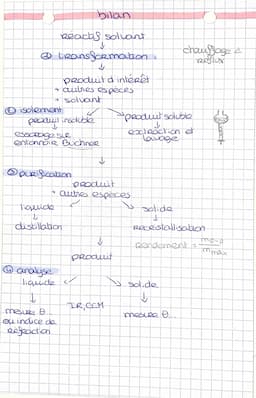 bilan
réactif solvant
① transformation
chauffage à
reflux
produit d'intérêt
+ autres espèces
+ solvant
② isolement
produit insoluble
produit soluble
essorage sur
entonnoir Büchner
extraction et
lavage
③ purification
produit
+ autres espèces
liquide
solide
distillation
recristallisation
rendement =
produit
④ analyse
liquide
solide
IR, CCM
mesure θ...
ou indice de
réfraction
mesure θ...